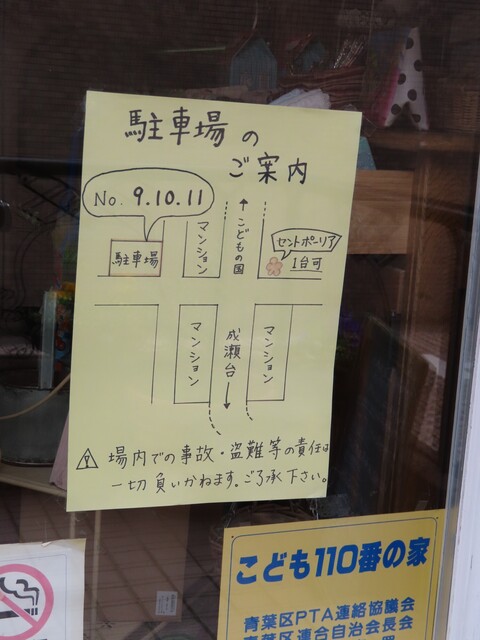 駐車場の
ご案内
No. 9.10.11
駐車場
マンション
こどもの国
セントポーリア
1台可
マンション
成瀬台
マンション
場内での事故・盗難等の責任は
一切負いかねます。ご了承下さい。
こども110番の家
青葉区PTA連絡協議会
青葉区連合自治会長会